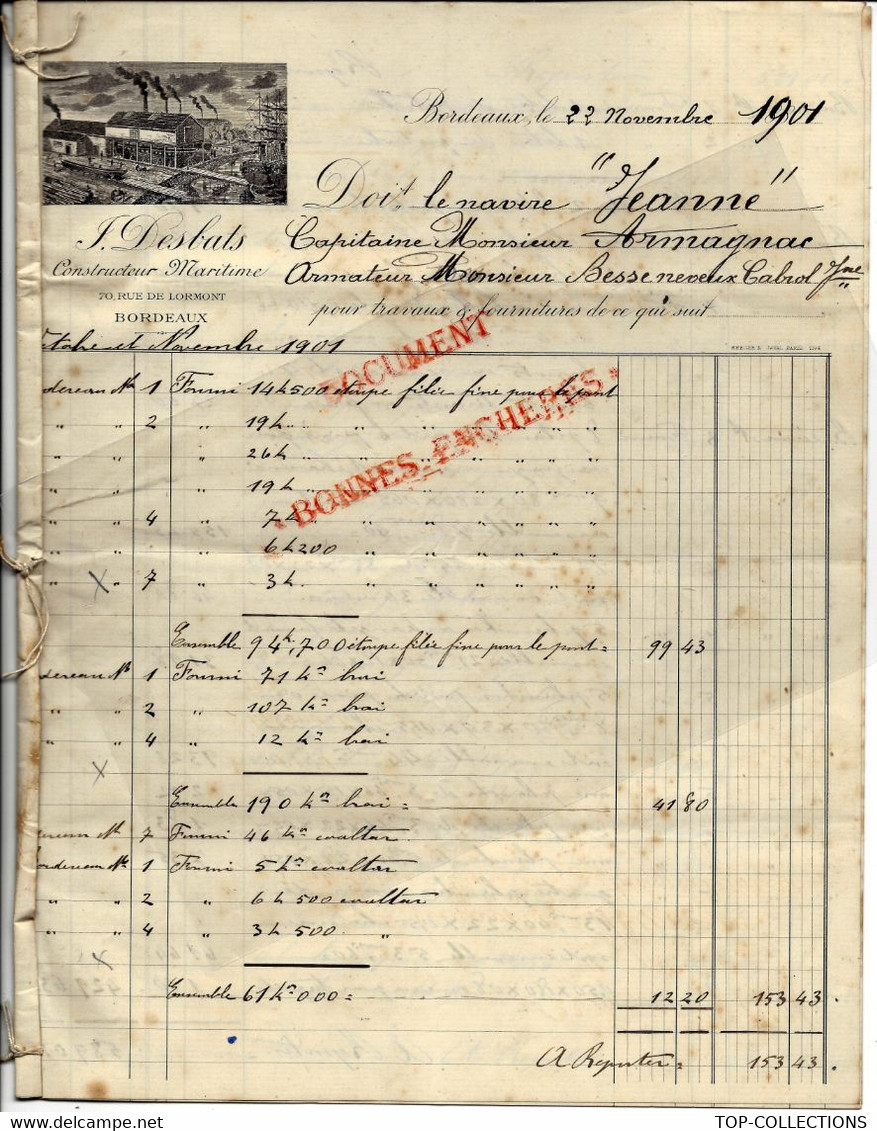 Bordeaux, le 22 Novembre 1901
Doit le navire "Jeanne"
J. Desbats
Capitaine Monsieur Armagnac
Constructeur Maritime
Armateur Monsieur Besse neveux Cabrol Jne
70, RUE DE LORMONT
pour travaux & fournitures de ce qui suit
BORDEAUX
ctobre et Novembre 1901
DOCUMENT
BONNES ENCHERES
dereau No 1 Fourni 14k500 étoupe filée fine pour le pont
" " 2 " 19k " " " " " "
" " " 26k " " " " " "
" " " 19k " " " " " "
" " 4 " 7k " " " " " "
" " " 6k200 " " " " " "
" " 7 " 3k " " " " " "
Ensemble 94k,700 étoupe filée fine pour le pont = 99 43
dereau No 1 Fourni 71 kos brai
" " 2 " 107 kos brai
" " 4 " 12 kos brai
Ensemble 190 kos brai = 41 80
ereau No 7 Fourni 46 kos coaltar
ordereau No 1 Fourni 5 kos coaltar
" " 2 " 6k500 coaltar
" " 4 " 3k500 "
Ensemble 61 kos 000 = 12 20 153 43
A Reporter = 153 43
TOP-COLLECTIONS